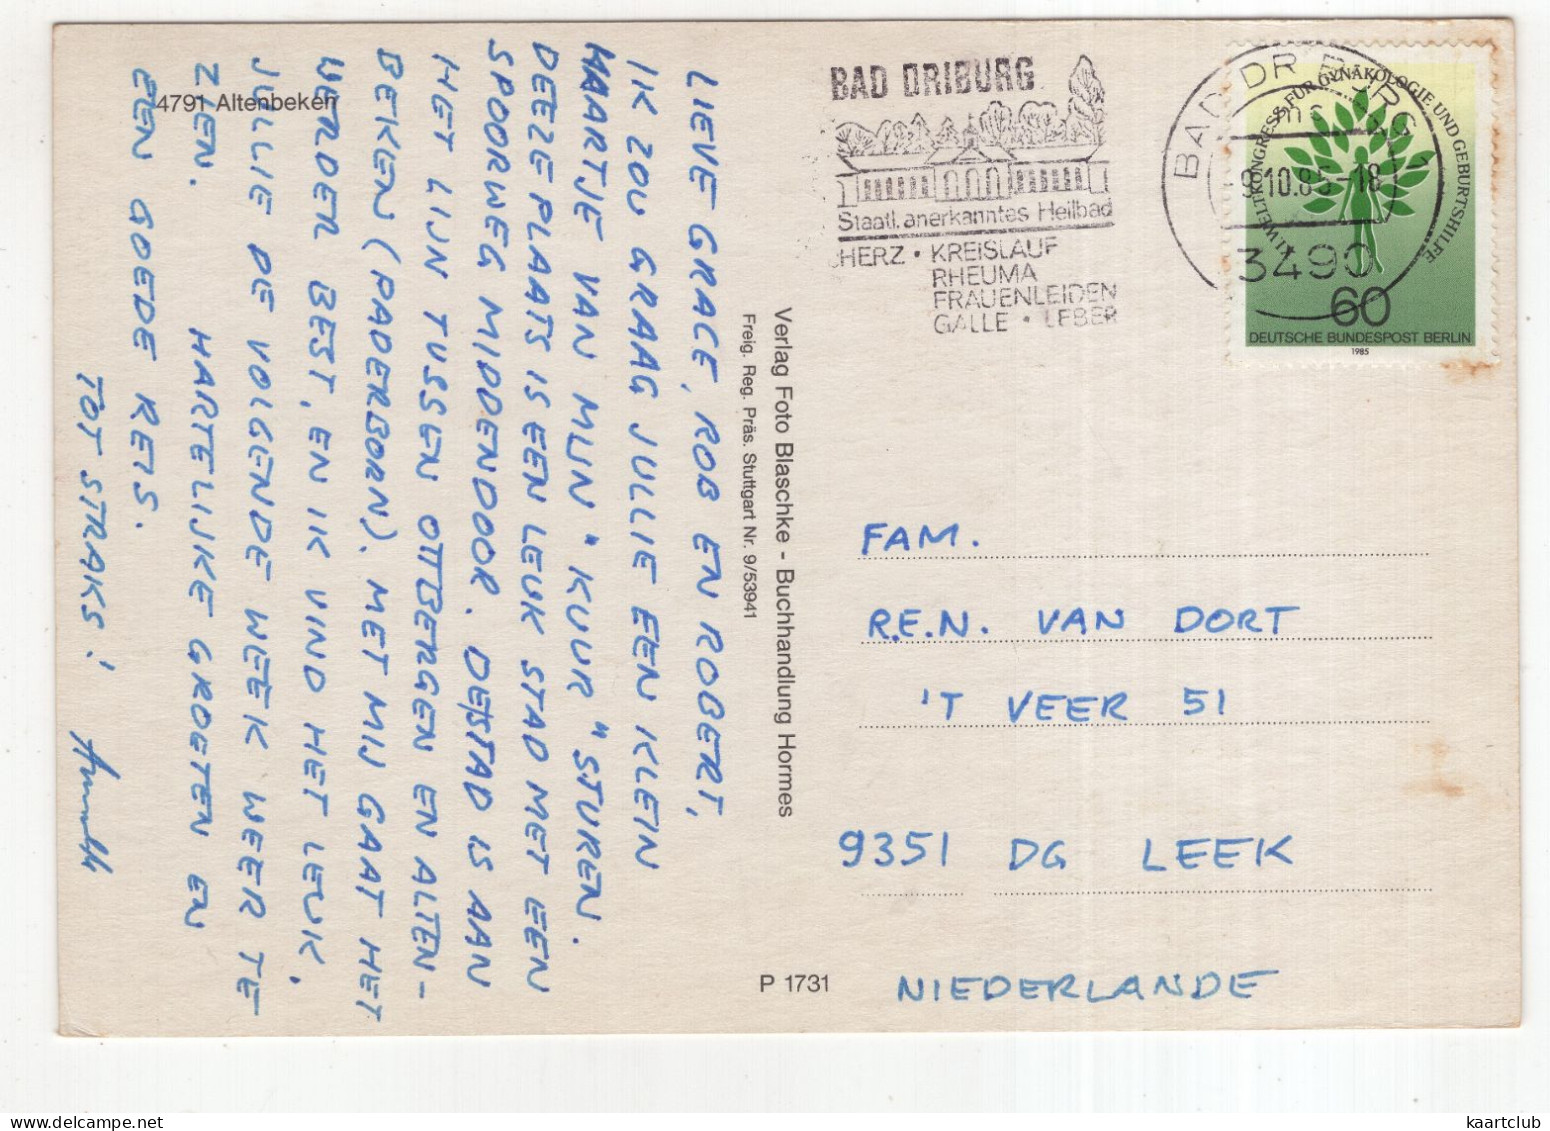 4791 Altenbeken
LIEVE GRACE, ROB EN ROBERT,
IK ZOU GRAAG JULLIE EEN KLEIN
KAARTJE VAN MIJN "KUUR" STUREN.
DEEZE PLAATS IS EEN LEUK STAD MET EEN
SPOORWEG MIDDENDOOR. DE STAD IS AAN
HET LIJN TUSSEN OTTBERGEN EN ALTEN-
BEKEN (PADERBORN). MET MIJ GAAT HET
VERDER BEST, EN IK VIND HET LEUK,
JULLIE DE VOLGENDE WEEK WEER TE
ZIEN. HARTELIJKE GROETEN EN
EEN GOEDE REIS.
TOT STRAKS!
Verlag Foto Blaschke - Buchhandlung Hormes
Freig. Reg. Präs. Stuttgart Nr. 9/53941
P 1731
BAD DRIBURG
Staatl. anerkanntes Heilbad
HERZ • KREISLAUF
RHEUMA
FRAUENLEIDEN
GALLE • LEBER
BAD DRIBURG 1
9.10.85-18
3490
XI. WELTKONGRESS FÜR GYNÄKOLOGIE UND GEBURTSHILFE
60
DEUTSCHE BUNDESPOST BERLIN
1985
FAM.
R.E.N. VAN DORT
'T VEER 51
9351 DG LEEK
NIEDERLANDE
kaartclub